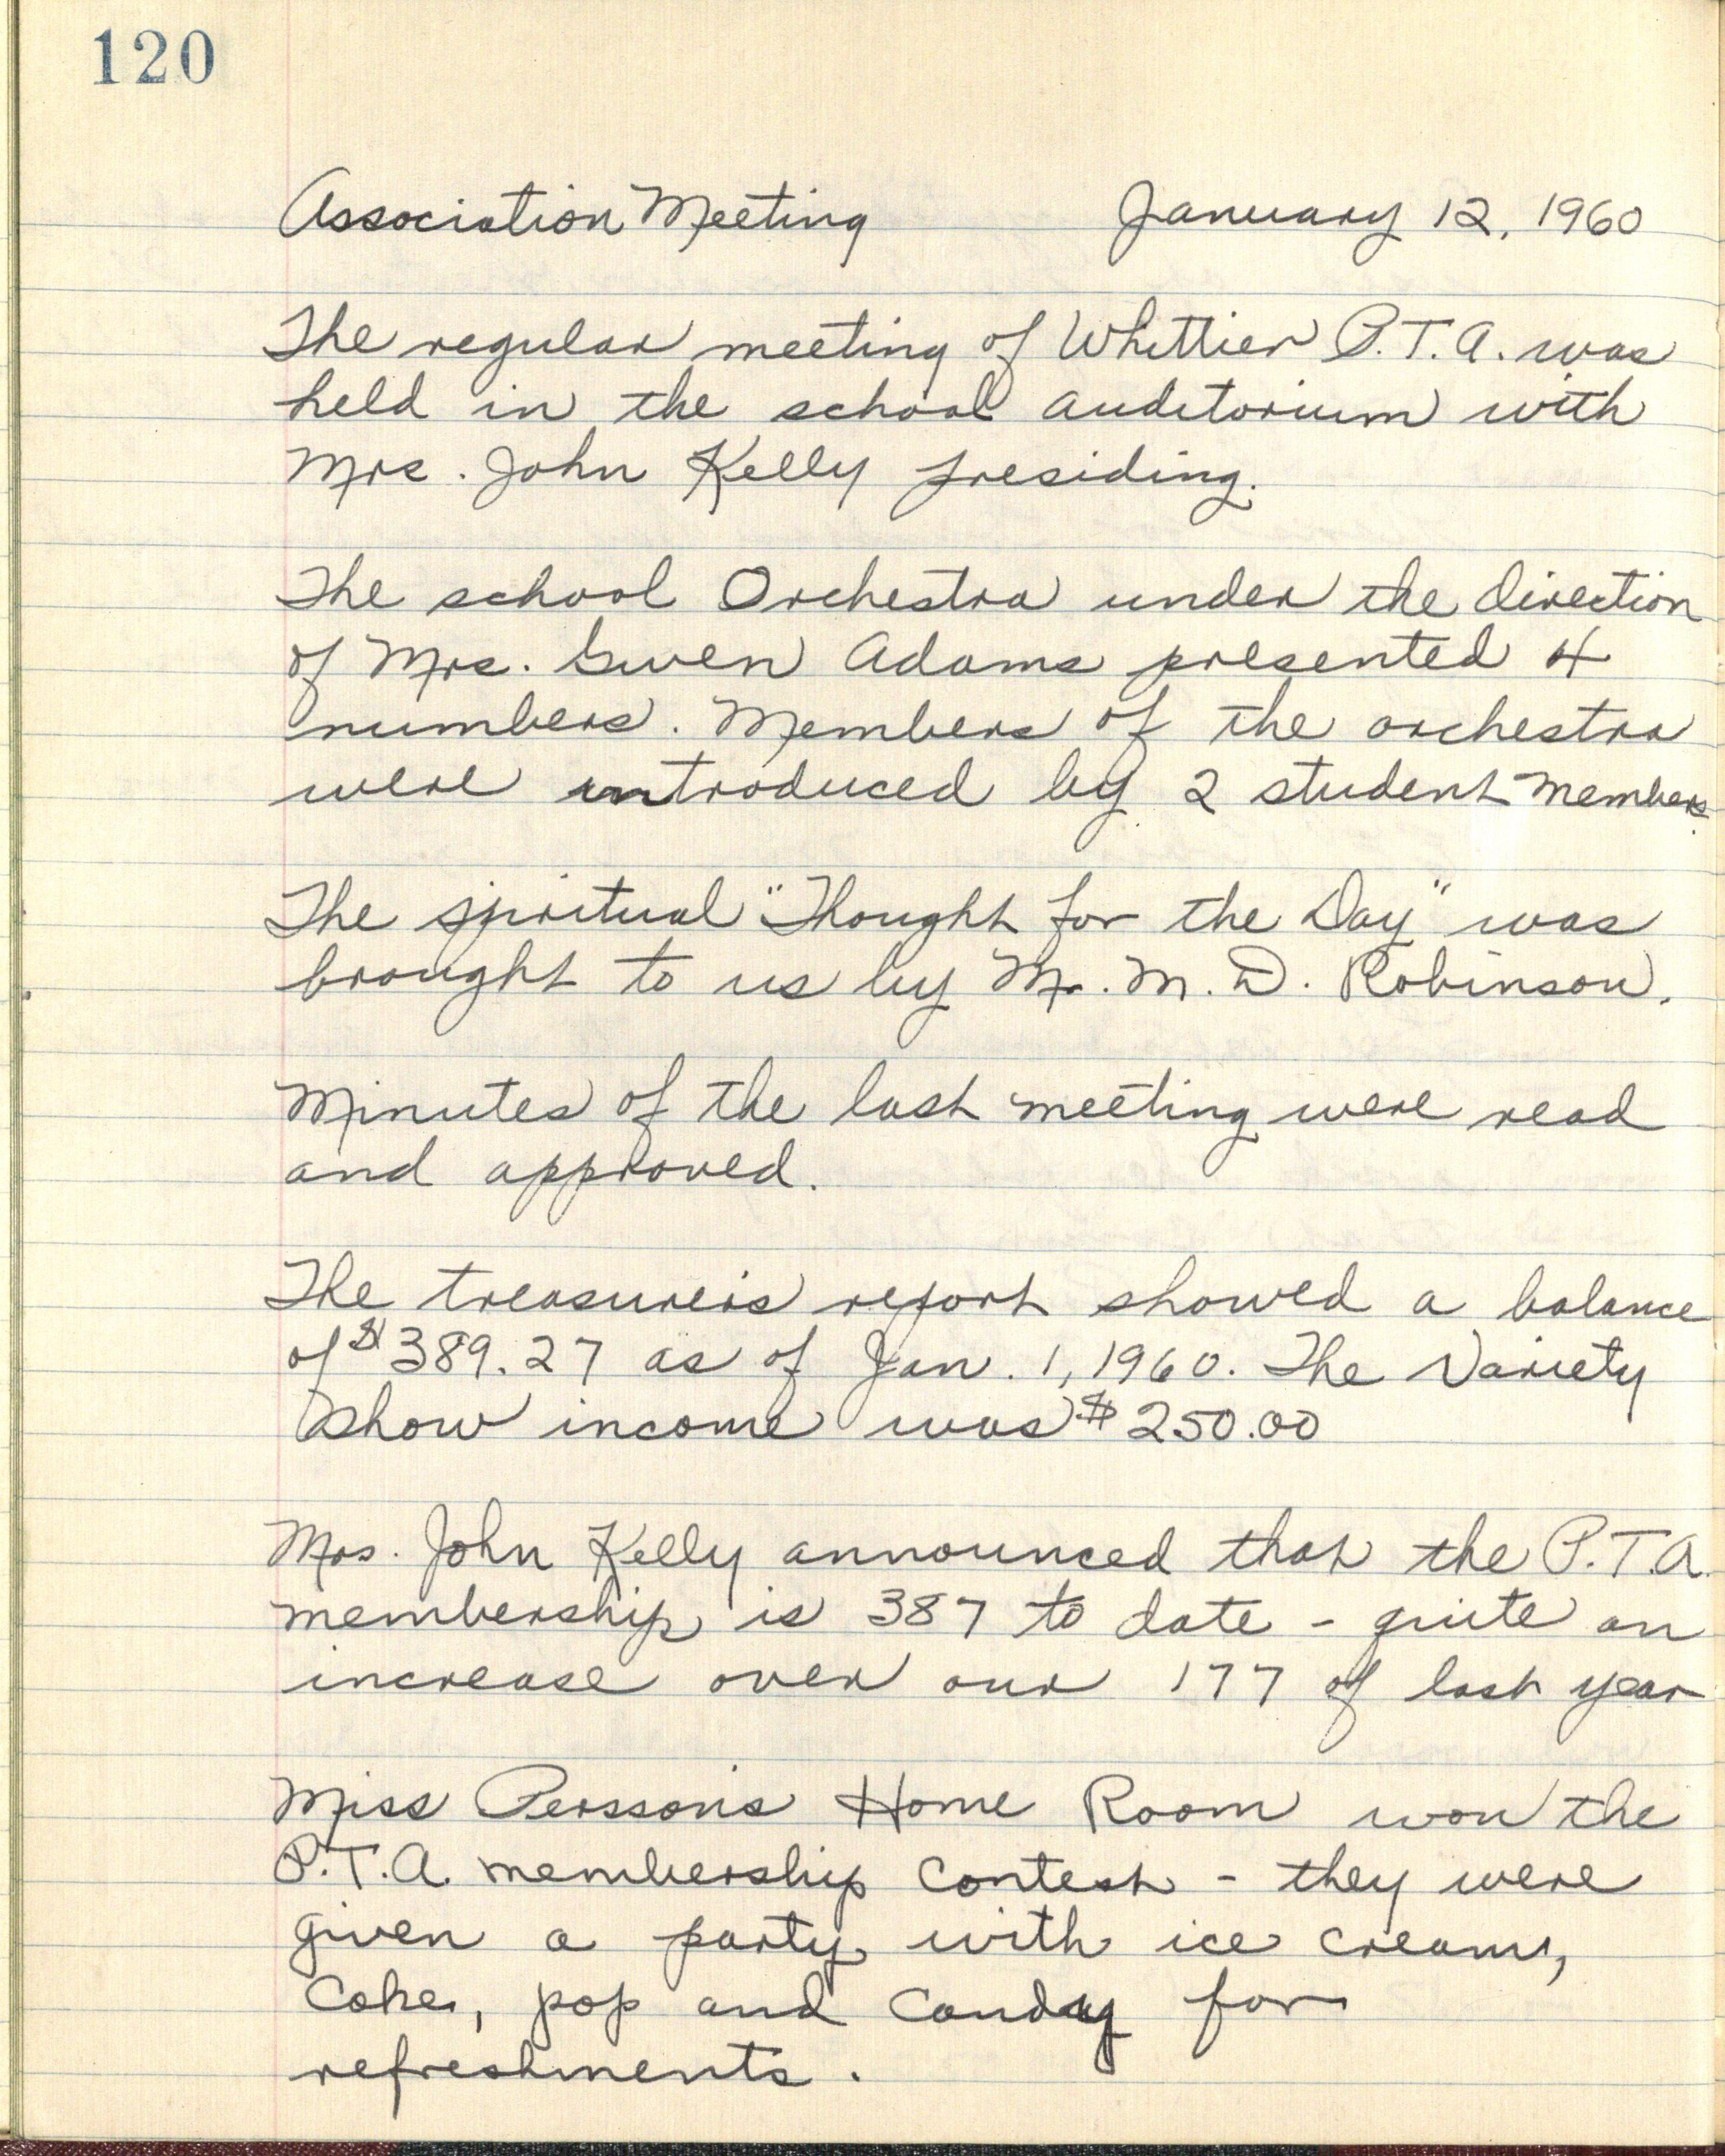 120
Association Meeting January 12, 1960
The regular meeting of Whittier P.T.A. was
held in the school auditorium with
Mrs. John Kelly presiding.
The school Orchestra under the direction
of Mrs. Gwen Adams presented 4
numbers. Members of the orchestra
were introduced by 2 student members.
The spiritual "Thought for the Day" was
brought to us by Mr. M. D. Robinson.
Minutes of the last meeting were read
and approved.
The treasurer's report showed a balance
of $389.27 as of Jan. 1, 1960. The Variety
Show income was $250.00
Mrs. John Kelly announced that the P.T.A.
membership is 387 to date - quite an
increase over our 177 of last year
Miss Persson's Home Room won the
P.T.A. membership contest - they were
given a party with ice cream,
Coke, pop and candy for
refreshments.